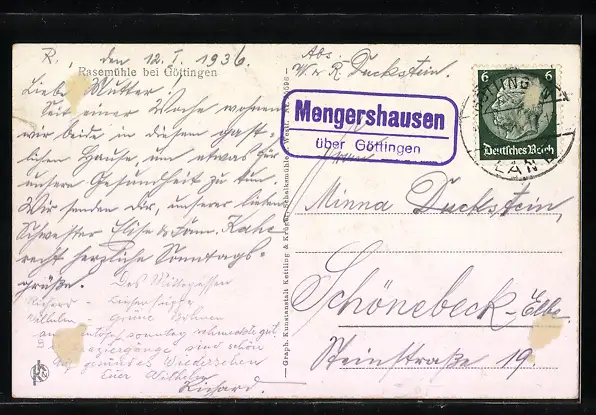 R., den 12. I. 1936.
Rasemühle bei Göttingen
Liebe Mutter.
Seit einer Woche wohnen
wir beide, in diesem gast-
lichen Hause, um etwas für
unsere Gesundheit zu tun.
Wir senden Dir, unserer lieben
Schwester Elise & Fam.
recht herzliche Sonntags-
grüße.
Des Mittagessen
Richard - Linsensuppe
Wilhelm - Grüne Bohnen
sonntag schmeckte gut
Die Spaziergänge sind schön
Auf gesundes Wiedersehen
Euer Wilhelm
Richard.
Graph. Kunstanstalt Kettling & Krüger, Schalksmühle i. Westf.
Abs.
W. & R. Duckstein.
Mengershausen
über Göttingen
6 6
Deutsches Reich
GÖTTINGEN
LAND
Minna Duckstein,
Schönebeck-Elbe.
Steinstraße 19.